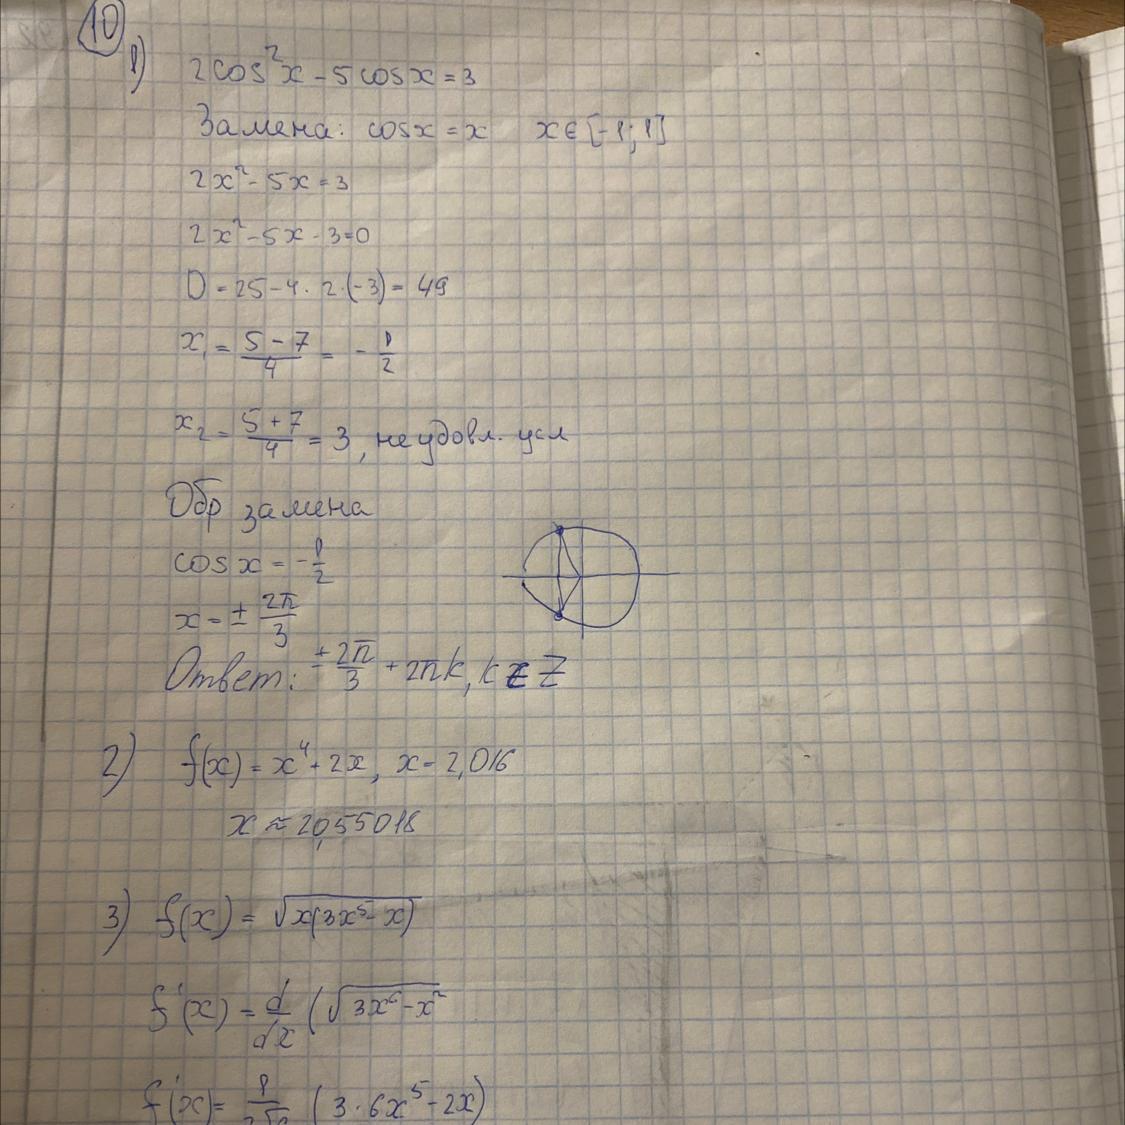 10
1) 2cos²x - 5cosx = 3
Замена: cosx = x x ∈ [-1; 1]
2x² - 5x = 3
2x² - 5x - 3 = 0
D = 25 - 4 · 2 · (-3) = 49
x₁ = (5 - 7)/4 = - 1/2
x₂ = (5 + 7)/4 = 3, не удовл. усл
Обр замена
cos x = - 1/2
x = ± 2π/3
Ответ: ± 2π/3 + 2πk, k ∈ Z
2) f(x) = x⁴ + 2x, x = 2,016
x ≈ 20,55018
3) f(x) = √x(3x⁵ - x)
f'(x) = d/dx (√3x⁶ - x²
f'(x) = (3 · 6x⁵ - 2x)